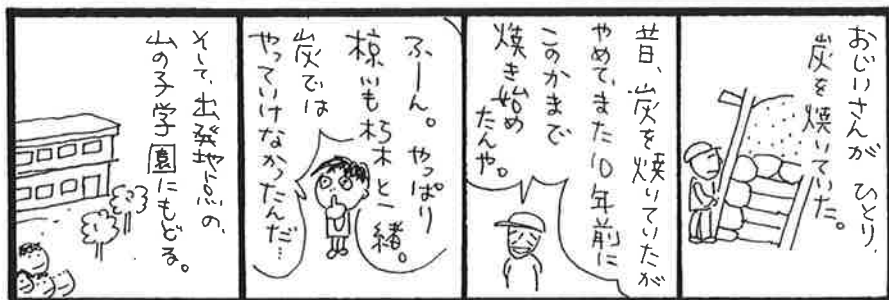 おじいさんが ひとり、
炭を焼いていた。
昔、炭を焼いていたが
やめて、また10年前に
このかまで
焼き始め
たんや。
ふーん。やっぱり
椋川も朽木と一緒。
炭では
やっていけなかったんだ…
そして、出発地点の、
山の子学園にもどる。